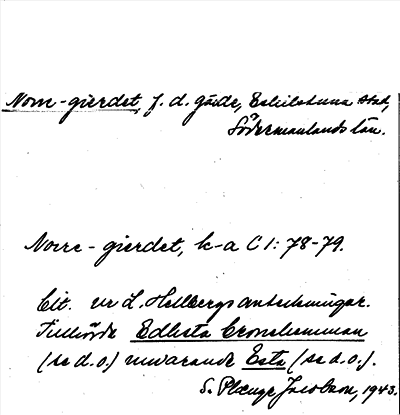 Norr-gierdet, f. d. gärde, Eskilstuna stad,
Södermanlands län.
Norre-gierdet, k-a C 1: 78-79.
Cit. ur L. Hellbergs anteckningar.
Tillhörde Edlesta Cronohemman
(se d. o.) nuvarande Esta (se d. o.).
S. Plænge Jacobson, 1943.